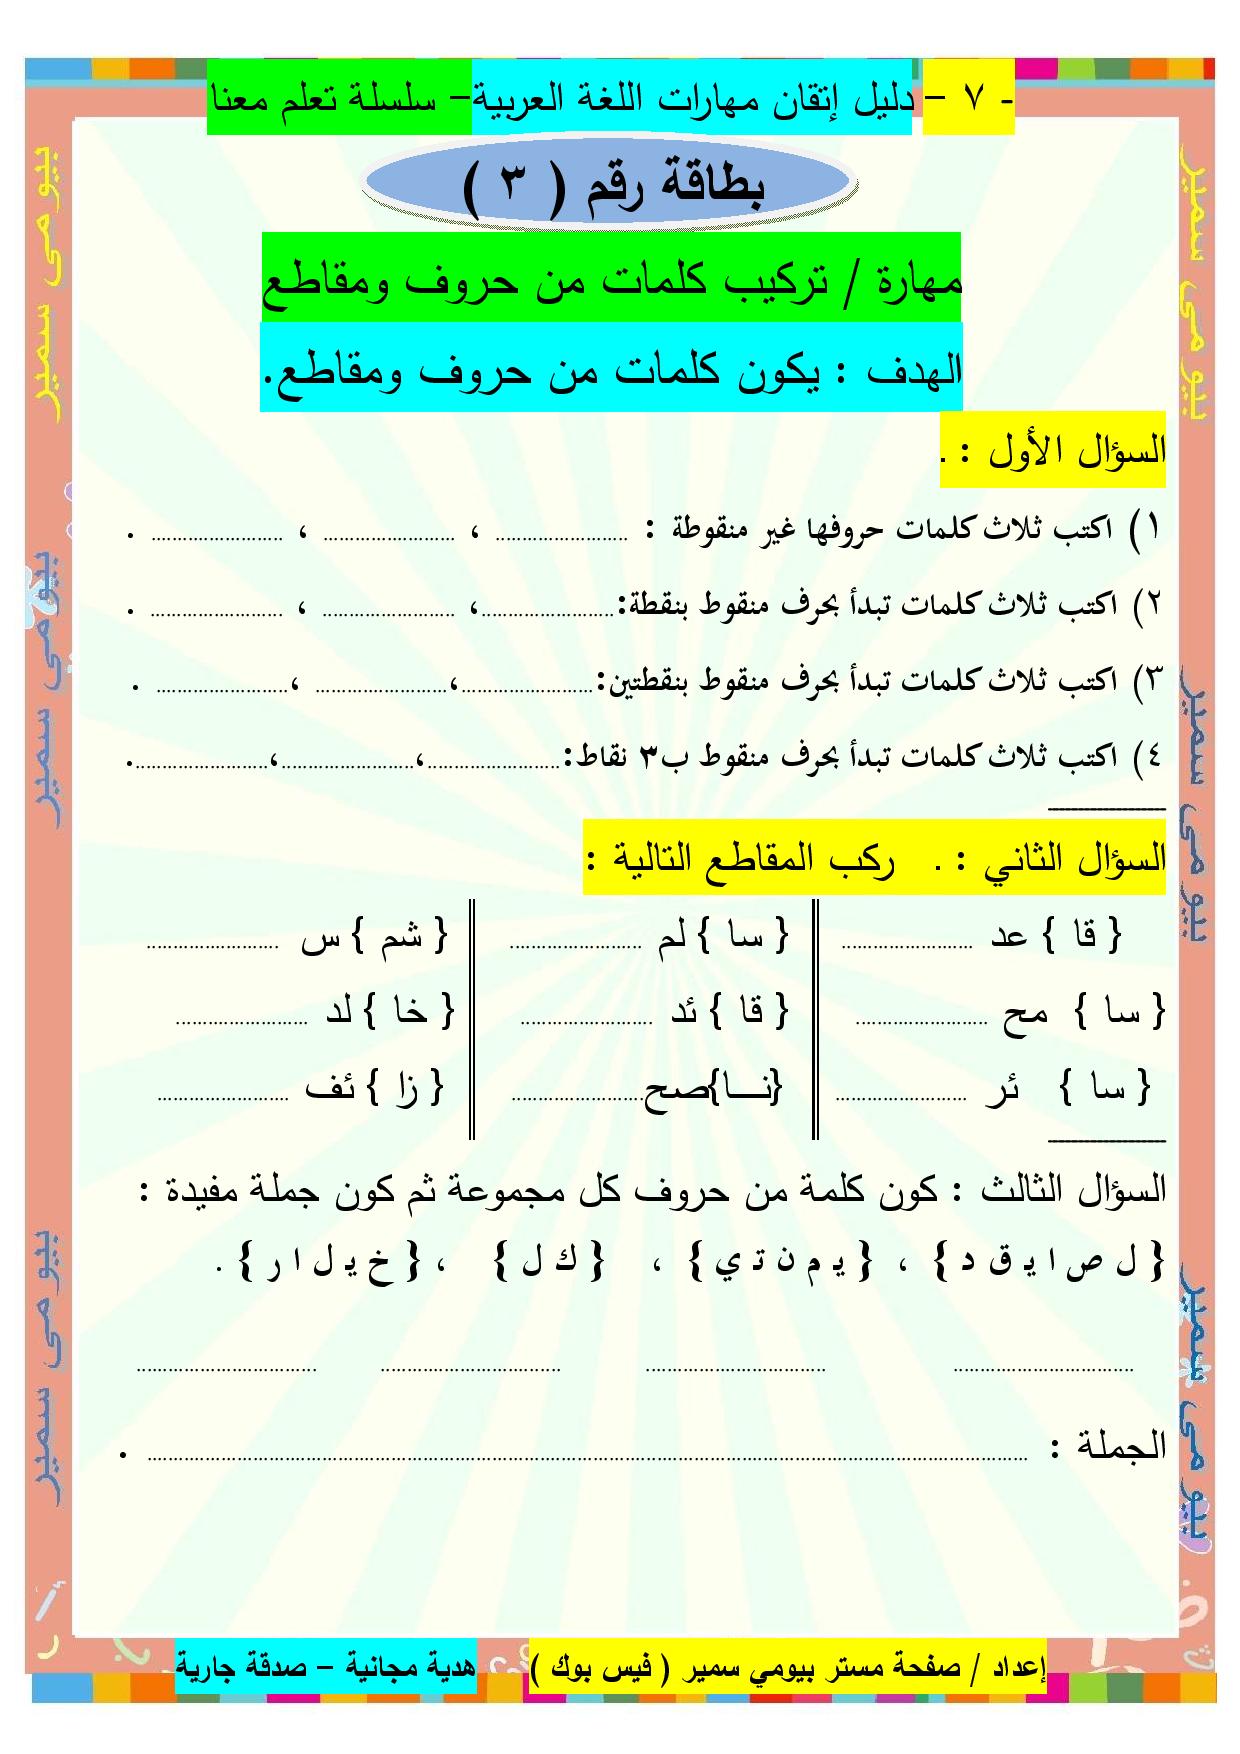 - ٧ – دليل إتقان مهارات اللغة العربية – سلسلة تعلم معنا
بطاقة رقم ( ٣ )
مهارة / تركيب كلمات من حروف ومقاطع
الهدف : يكون كلمات من حروف ومقاطع.
السؤال الأول : .
١) اكتب ثلاث كلمات حروفها غير منقوطة : ......................... ، ......................... ، ......................... .
٢) اكتب ثلاث كلمات تبدأ بحرف منقوط بنقطة:.........................، ......................... ، ......................... .
٣) اكتب ثلاث كلمات تبدأ بحرف منقوط بنقطتين:.........................،......................... ،......................... .
٤) اكتب ثلاث كلمات تبدأ بحرف منقوط ب٣ نقاط:.........................،.........................،..........................
السؤال الثاني : . ركب المقاطع التالية :
{ قا } عد ......................... { سا } لم ......................... { شم } س .........................
{ سا } مح ......................... { قا } ئد ......................... { خا } لد .........................
{ سا } ئر ......................... {نـــا}صح......................... { زا } ئف .........................
السؤال الثالث : كون كلمة من حروف كل مجموعة ثم كون جملة مفيدة :
{ ل ص ا ي ق د } ، { ي م ن ت ي } ، { ك ل } ، { خ ي ل ا ر } .
.................................. .................................. .................................. ..................................
الجملة : ........................................................................ .
إعداد / صفحة مستر بيومي سمير ( فيس بوك ) هدية مجانية – صدقة جارية
بيومى سمير
بيومى سمير
بيومى سمير
بيومى سمير
بيومى سمير
بيومى سمير